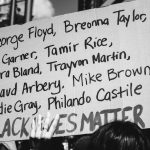 George Floyd, Breonna Taylor,
Garner, Tamir Rice,
ra Bland, Trayvon Martin,
aud Arbery, Mike Brown
die Gray, Philando Castile
BLACK LIVES MATTER